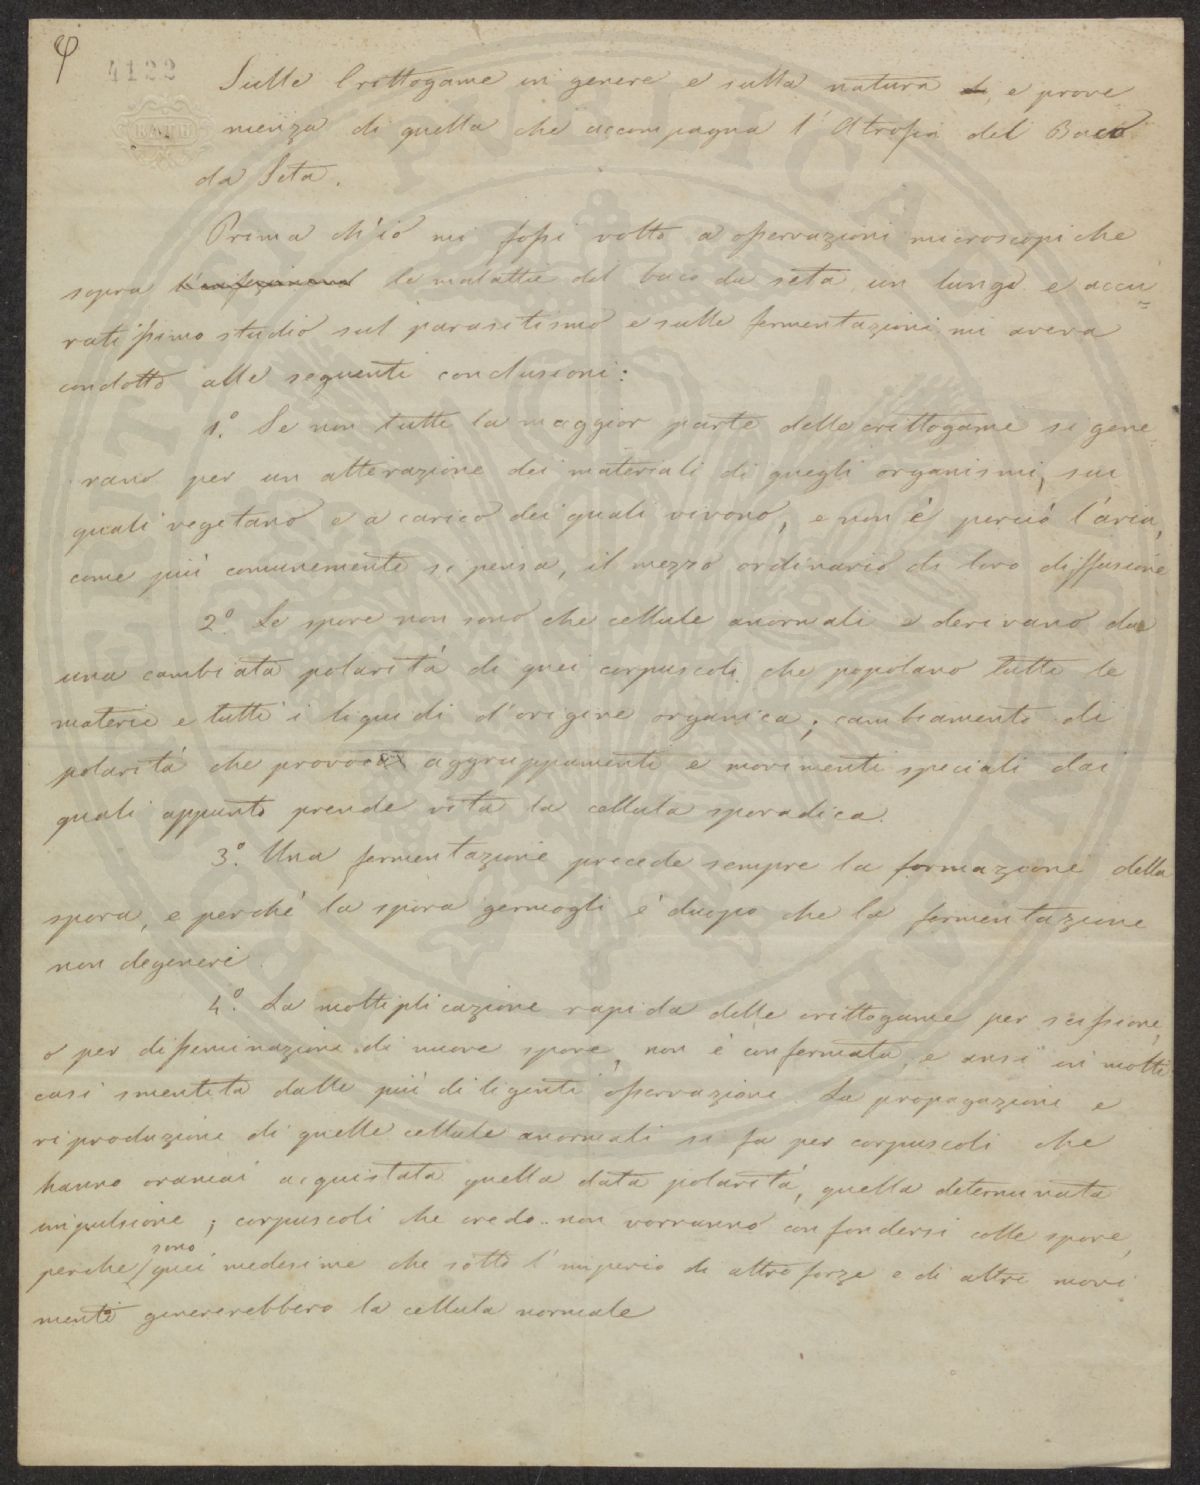 φ
4122
BATH
Sulle Crittogame in genere e sulla natura e prove
nienza di quella che accompagna l'Atrofia del Baco
da Seta.
Prima ch'io mi fossi volto a osservazioni microscopiche
sopra le malattie del baco da seta, un lungo e accu=
ratissimo studio sul parasitismo e sulle fermentazioni mi aveva
condotto alle seguenti conclusioni:
1.º Se non tutte la maggior parte delle crittogame si gene=
rano per un alterazione dei materiali di quegli organismi, sui
quali vegetano e a carico dei quali vivono, e non è perciò l'aria,
come più comunemente si pensa, il mezzo ordinario di loro diffusione
2.º Le spore non sono che cellule anormali e derivano da
una cambiata polarità di quei corpuscoli che popolano tutte le
materie e tutti i liquidi d'origine organica; cambiamento di
polarità che provoca aggruppamenti e movimenti speciali dai
quali appunto prende vita la cellula sporadica.
3.º Una fermentazione precede sempre la formazione della
spora, e perchè la spora germogli è duopo che la fermentazione
non degeneri.
4.º La moltiplicazione rapida delle crittogame per scissione,
o per disseminazione di nuove spore, non è confermata, e ansi in molti
casi smentita dalle più diligenti osservazione. La propagazioni e
riproduzione di quelle cellule anormali si fa per corpuscoli che
hanno oramai acquistata quella data polarità, quella determinata
impulsione; corpuscoli che credo non vorranno confondersi colle spore,
perche sono quei medesime che sotto l'imperio di altre forze e di altri movi
menti genererebbero la cellula normale